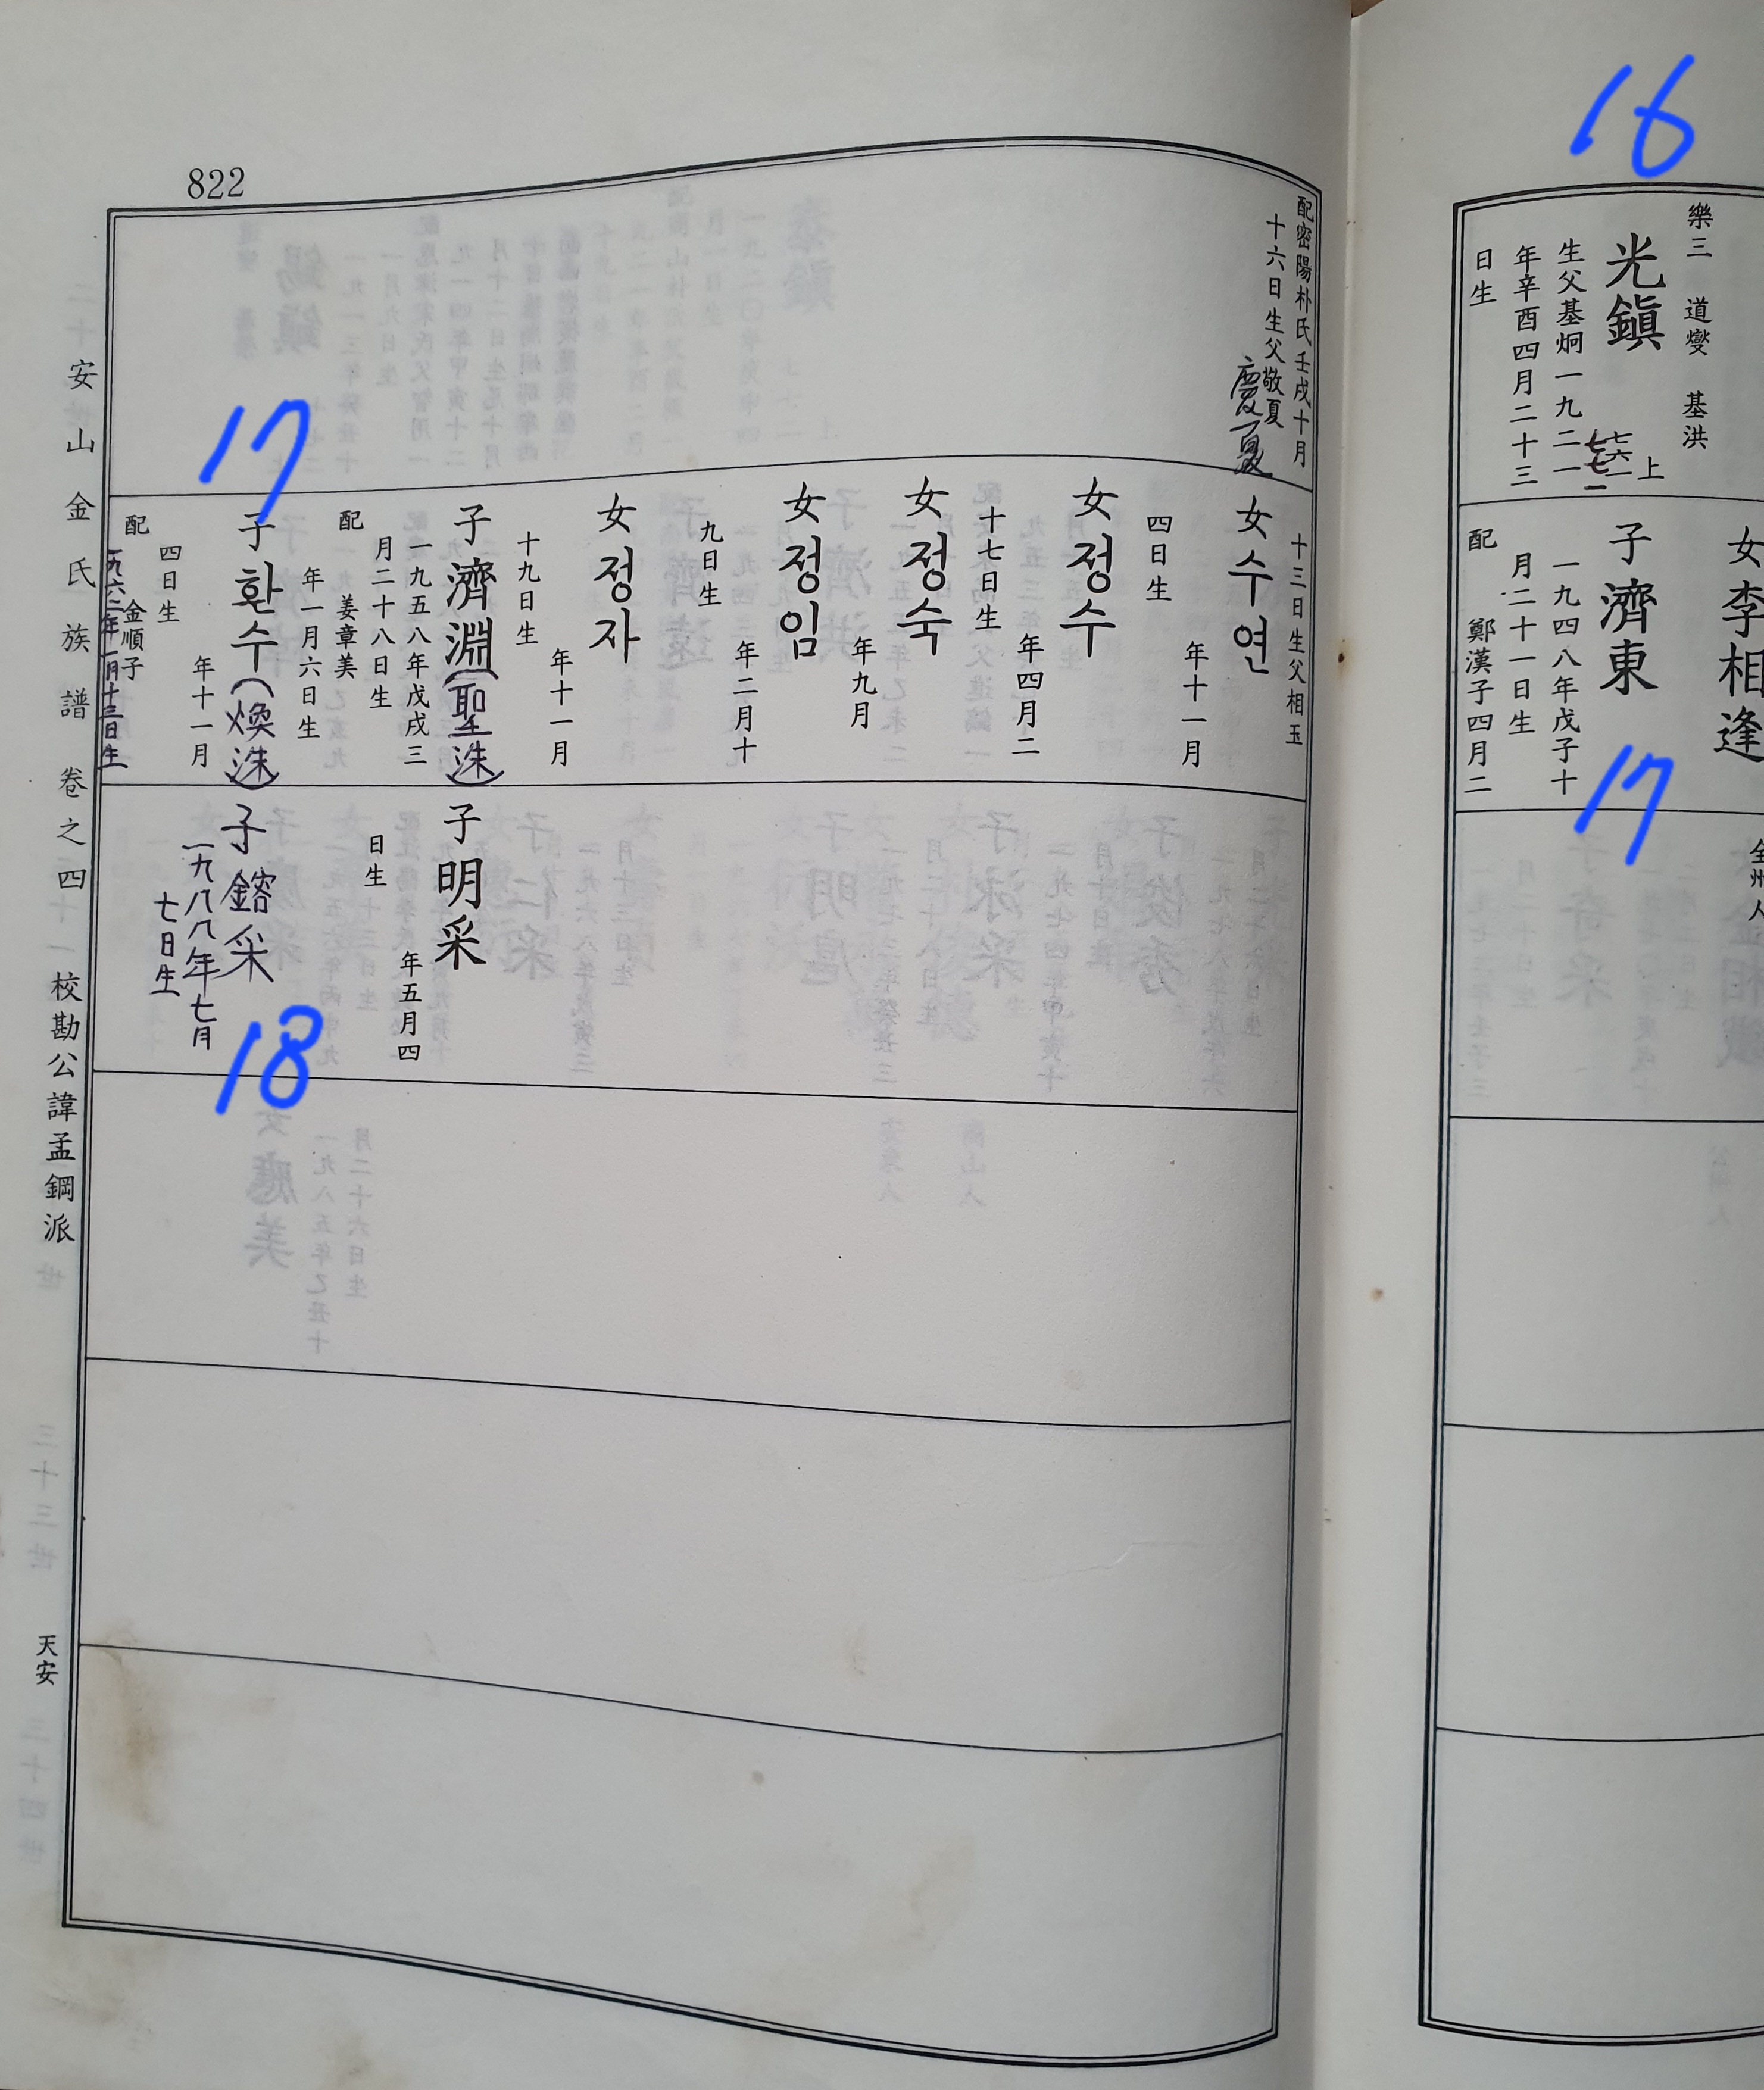 16
樂三 道燮 基洪
上
七六一
七七一
光鎭
生父基炯一九二一
年辛酉四月二十三
日生
女李相逢
全州人
子濟東
一九四八年戊子十
月二十一日生
配 鄭漢子四月二
17
822
配密陽朴氏壬戌十月
十六日生父敬夏
慶夏
十三日生父相玉
女수연
年十一月
四日生
女정수
年四月二
十七日生
女정숙
年九月
女정임
年二月十
九日生
女정자
年十一月
十九日生
子濟淵(聖洙)
一九五八年戊戌三
月二十八日生
配 姜章美
年一月六日生
17
子환수(煥洙)
年十一月
四日生
配 金順子
一九六二年一月十三日生
子明采
年五月四
日生
子鎔采
一九八八年七月
七日生
18
安山金氏族譜 卷之四十一 校勘公諱孟鋼派
天安